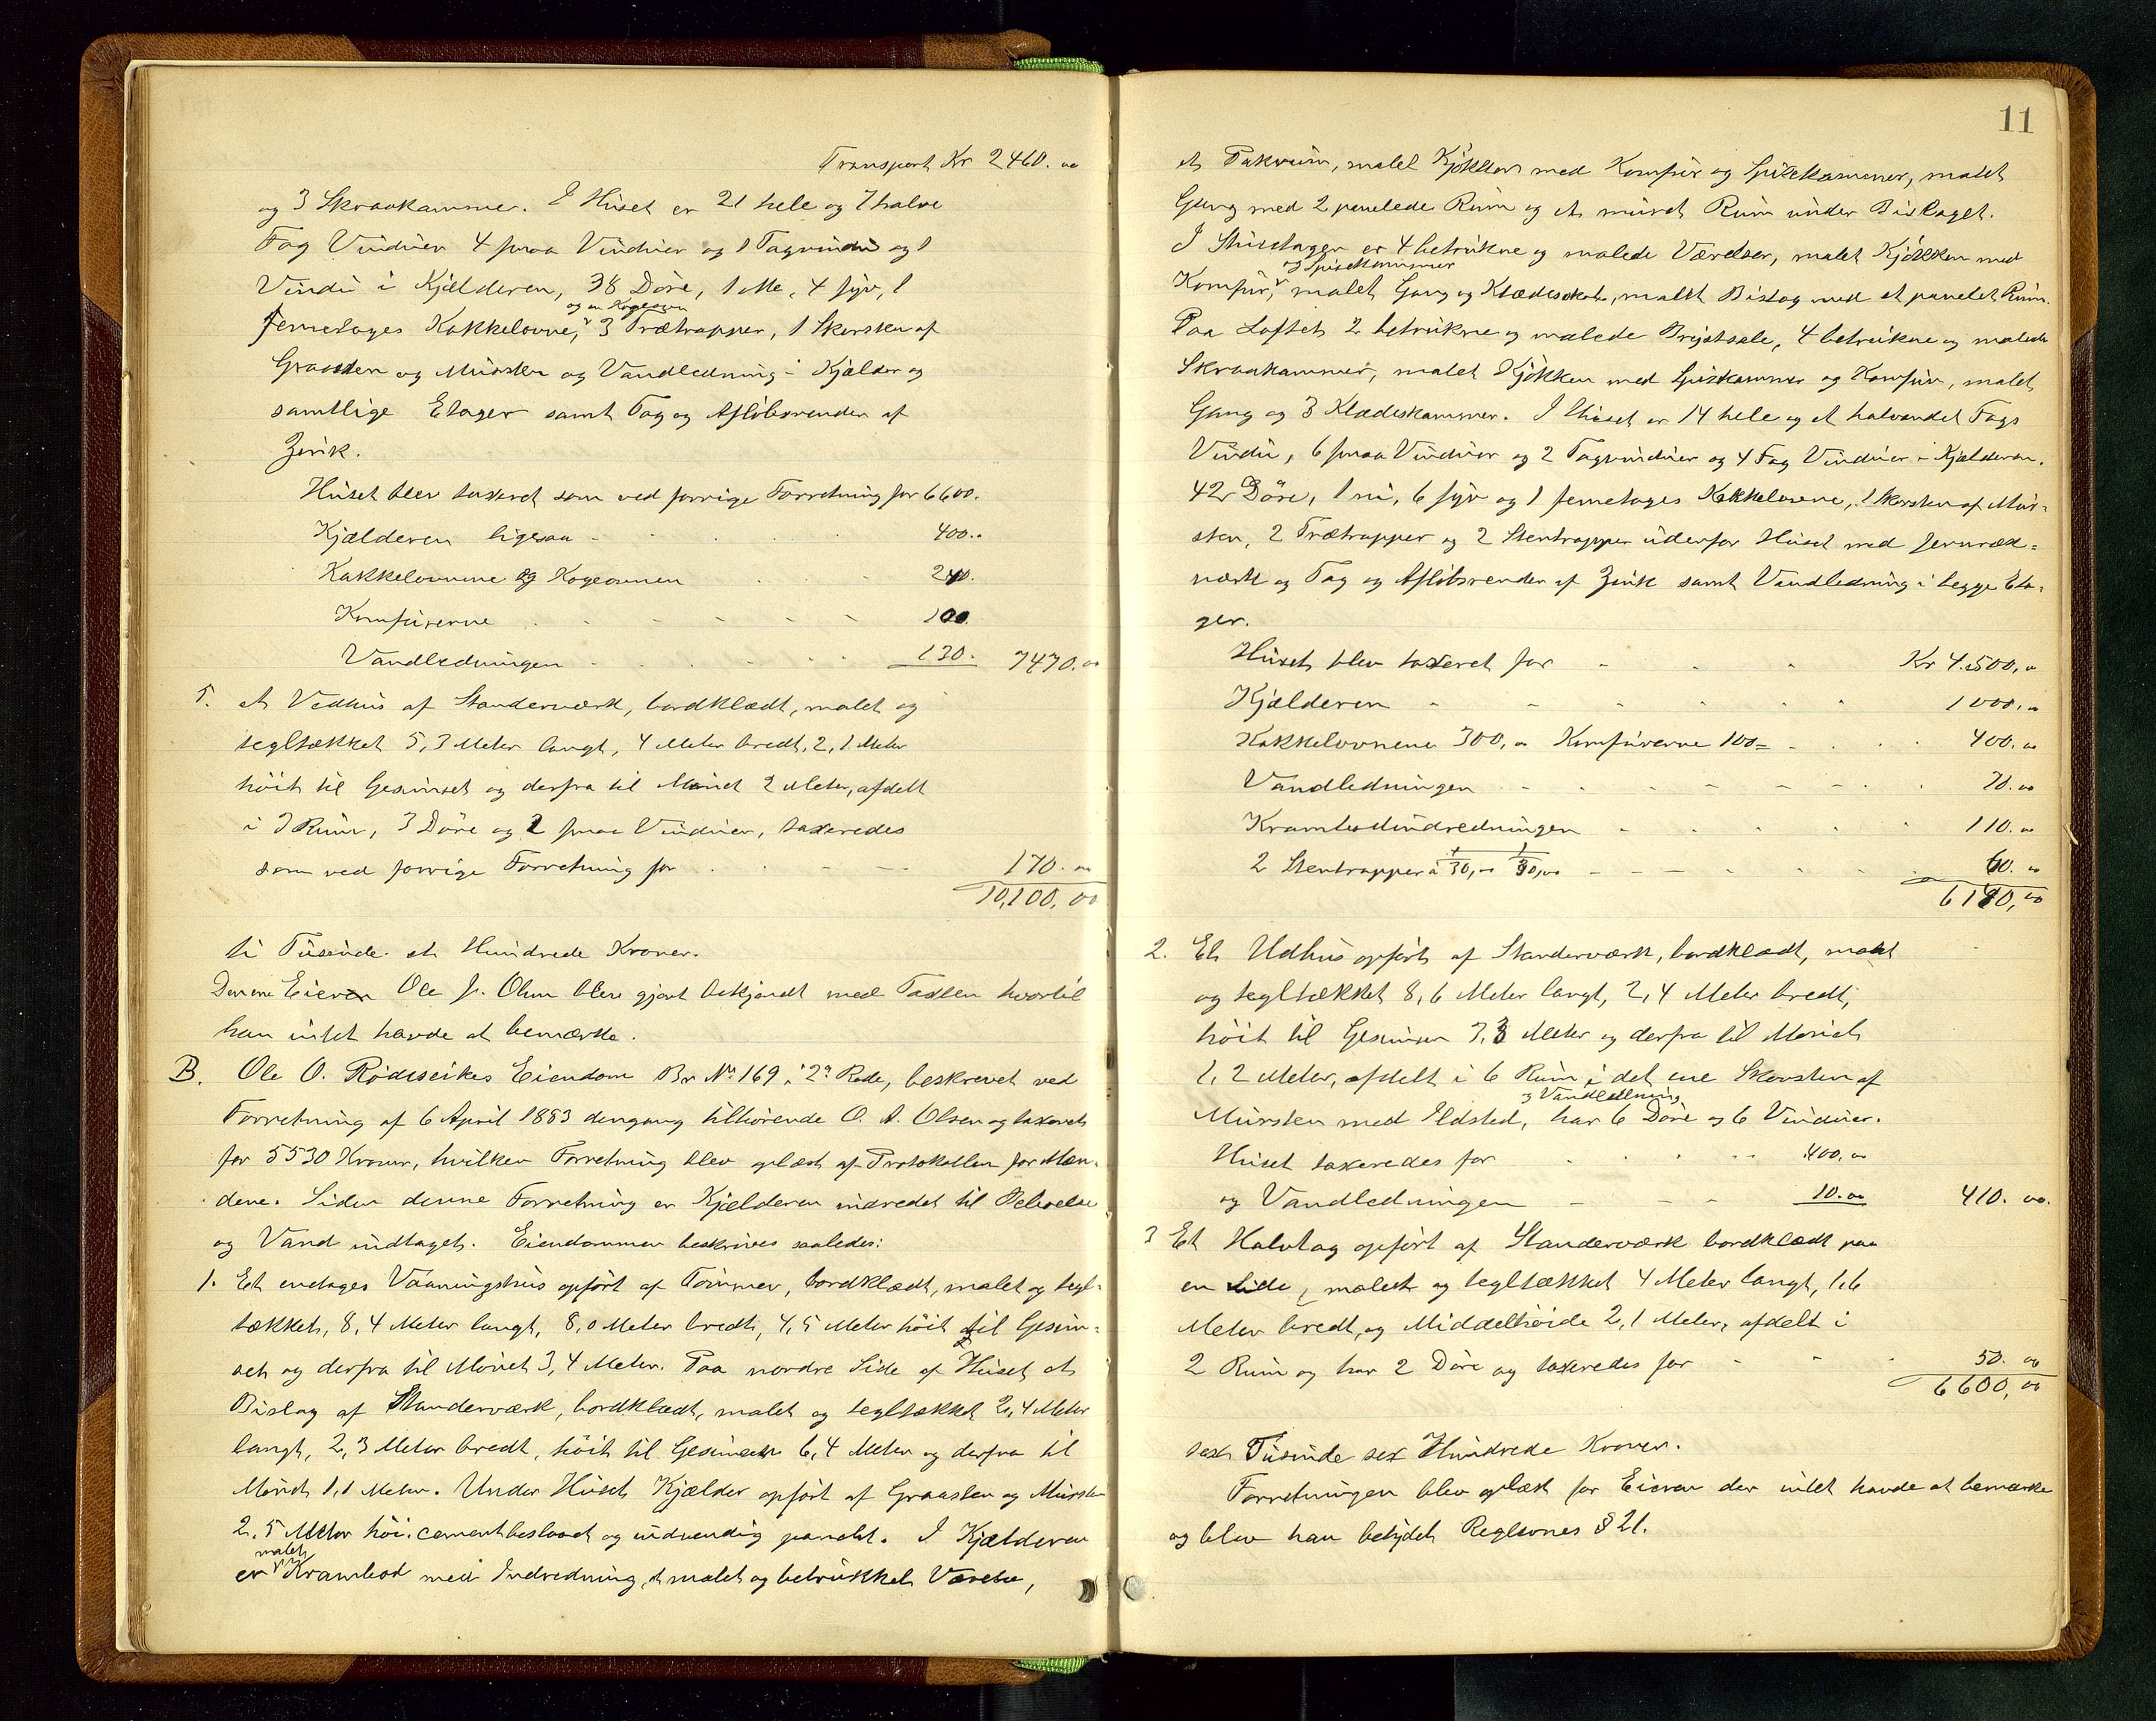 Transport Kr 2460.00
og 3 Skraakammer. I Huset er 21 hele og 7 halve
Fag Vinduer 4 smaa Vinduer og 1 Tagvindu og 1
Vindu i Kjælderen, 38 Döre, 1 otte, 4 syv, 1
og en Kogeovn
femetages Kakkelovne, 3 Trætrapper, 1 Skorsten af
Graasten og Mursten og Vandledning i Kjælder og
samtlige Etager samt Tag og Aflöbsrender af
Zink.
Huset blev taxeret som ved forrige Forretning for 6600.
Kjælderen ligesaa 400..
Kakkelovnene og Kogeovnen 240.
Komfurerne 100.
Vandledningen 130. 7470.00
5. et Vedhus af Standerværk, bordklædt, malet og
tegltækket 5,3 Meter langt, 4 Meter bredt, 2,1 Meter
höit til Gesimset og derfra til Mönet 2 Meter, afdelt
i 3 Rum, 3 Döre og 2 smaa Vinduer, taxeredes
som ved forrige Forretning for 170.00
10,100,00
ti Tusinde et Hundrede Kroner.
Denne Eieren Ole J. Olsen blev gjort bekjendt med Taxten hvortil
han intet havde at bemærke.
B. Ole O. Rödseikes Eiendom Br No 169 i 2n Rode, beskrevet ved
Forretning af 6 April 1883 dengang tilhörende O. A. Olsen og taxeret
for 5530 Kroner, hvilken Forretning blev oplæst af Protokollen for Mæn-
dene. Siden denne Forretning er Kjælderen indredet til Beboelse
og Vand indtaget. Eiendommen beskrives saaledes:
1. Et enetages Vaaningshus opfört af Tömmer, bordklædt, malet og tegl-
tækket, 8,4 Meter langt, 8,0 Meter bredt, 4,5 Meter höit til Gesim-
set og derfra til Mönet 3,4 Meter. Paa nordre Side af Huset et
Bislag af Standerværk, bordklædt, malet og tegltækket 2,4 Meter
langt, 2,3 Meter bredt, höit til Gesimsen 6,4 Meter og derfra til
Mönet 1,1 Meter. Under Huset Kjælder opfört af Graasten og Mursten
2,5 Meter höi, cementbeslaaet og indvendig panelet. I Kjælderen
malet
er Krambod med Indredning, et malet og betrukket Værelse,
11
et Pakrum, malet Kjökken med Komfur og Spisekammer, malet
Gang med 2 panelede Rum og et muret Rum under Bislaget.
I Stuetagen er 4 betrukne og malede Værelser, malet Kjökken med
og Spisekammer
Komfur, malet Gang og Klædeskab, malet Bislag med et panelet Rum.
Paa Loftet 2 betrukne og malede Brystsale, 4 betrukne og malede
Skraakammer, malet Kjökken med Spiskammer og Komfur, malet
Gang og 3 Klædeskammer. I Huset er 14 hele og et halvandet Fags
Vindu, 6 smaa Vinduer og 2 Tagvinduer og 4 Fag Vinduer i Kjælderen.
42 Döre, 1 ni, 6 syv og 1 femetages Kakkelovne, 1 Skorsten af Mur-
sten, 2 Trætrapper og 2 Stentrapper udenfor Huset med Jernræk-
værk og Tag og Aflöbsrender af Zink samt Vandledning i begge Eta-
ger.
Huset blev taxeret for Kr 4.500,00
Kjælderen 1000,00
Kakkelovnene 300,00 Komfurerne 100= 400.00
Vandledningen 70.00
Krambodindredningen 110.00
2 Stentrapper á 30,00 30,00 60.00
6140,00
2. Et Udhus opfört af Standerværk, bordklædt, malet
og tegltækket 8,6 Meter langt, 2,4 Meter bredt,
höit til Gesimsen 3,3 Meter og derfra til Mönet
1,2 Meter, afdelt i 6 Rum i det ene Skorsten af
og Vandledning
Mursten med Ildsted, har 6 Döre og 6 Vinduer.
Huset taxeredes for 400.00
og Vandledningen 10.00 410.00.
3 Et Halvtag opfört af Standerværk bordklædt paa
en Side, malet og tegltækket 4 Meter langt, 1,6
Meter bredt, og Middelhöide 2,1 Meter, afdelt i
2 Rum og har 2 Döre og taxeredes for 50.00
6600,00
sex Tusinde sex Hundrede Kroner.
Forretningen blev oplæst for Eieren der intet havde at bemærke
og blev han betydet Reglernes § 21.